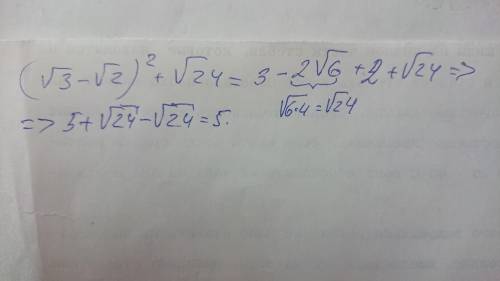 (√3 - √2)² + √24 = 3 - 2√6 + 2 + √24 =>
√6·4 = √24
=> 5 + √24 - √24 = 5.